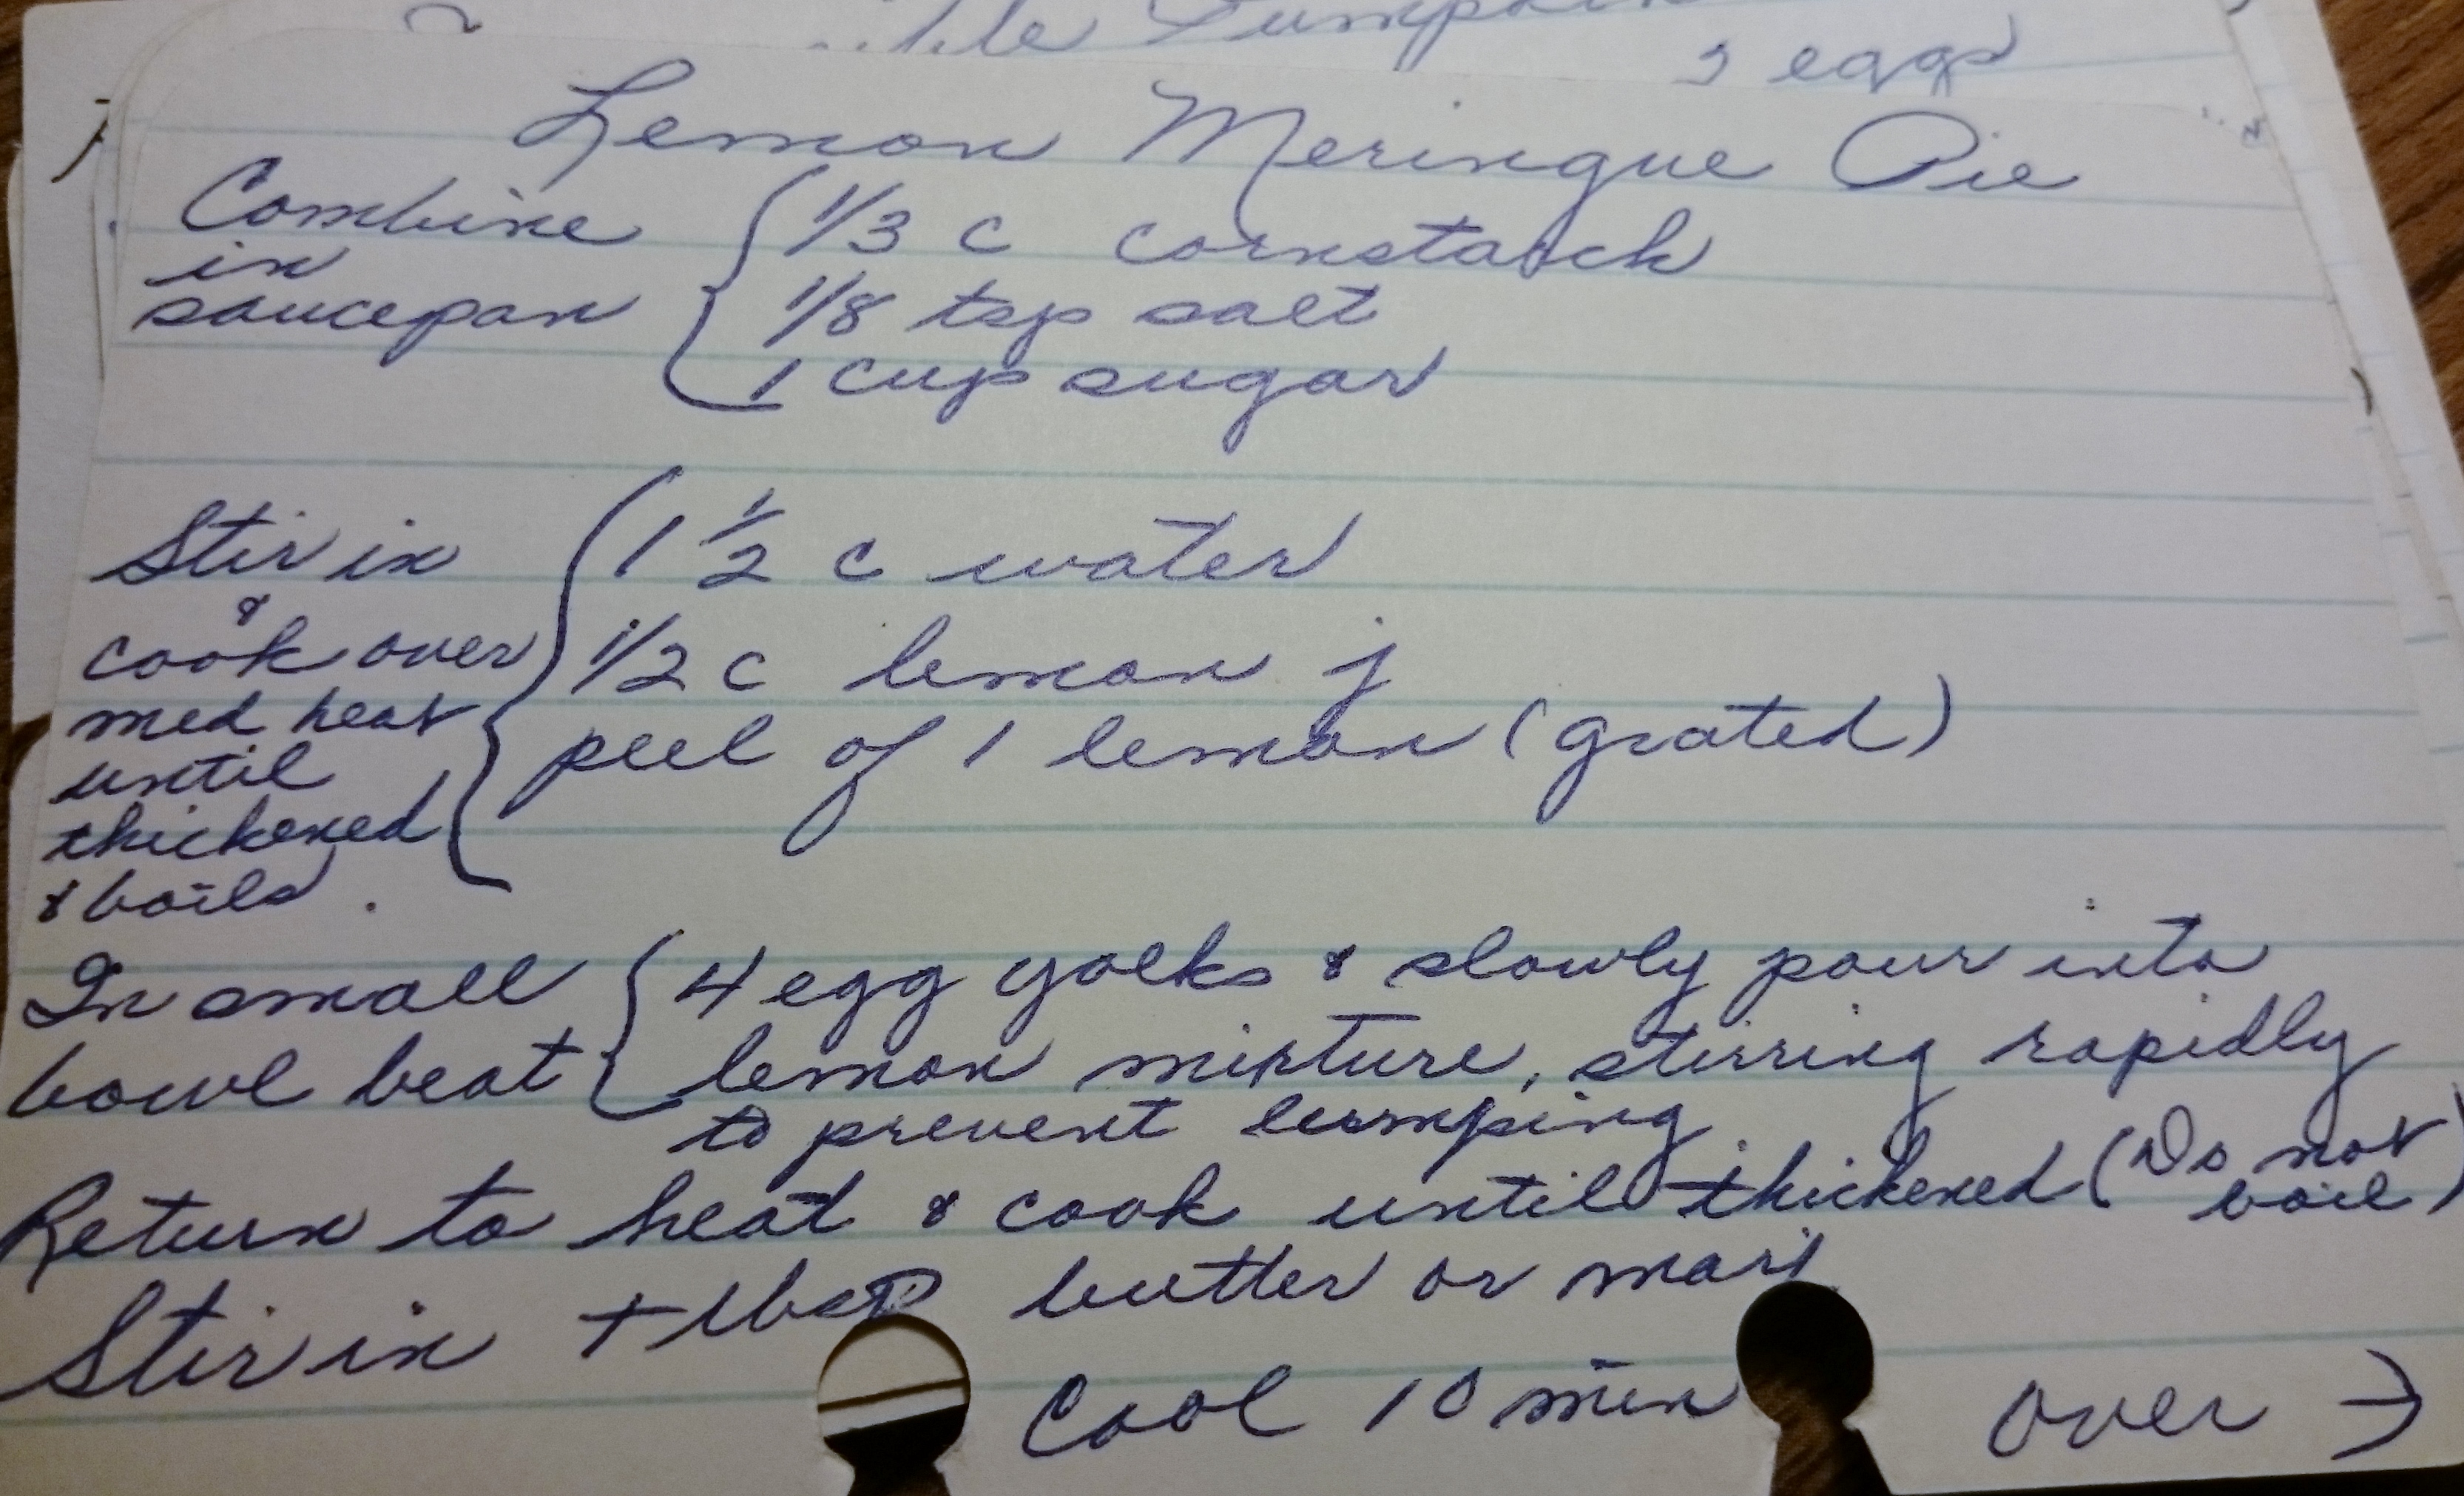 Pumpkin
eggs
Lemon Meringue Pie
Combine
in
saucepan
1/3 c cornstarch
1/8 tsp salt
1 cup sugar
Stir in
&
cook over
med heat
until
thickened
& boils.
1 1/2 c water
1/2 c lemon j
peel of 1 lemon (grated)
In small
bowl beat
4 egg yolks & slowly pour into
lemon mixture, stirring rapidly
to prevent lumping.
Return to heat & cook until thickened (Do not
boil)
Stir in 1 tbsp butter or marj
Cool 10 min
over →